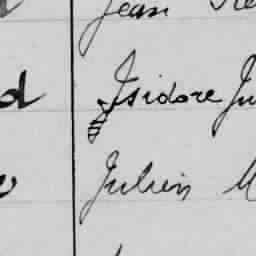 Jean
d Isidore Ju
Julien M